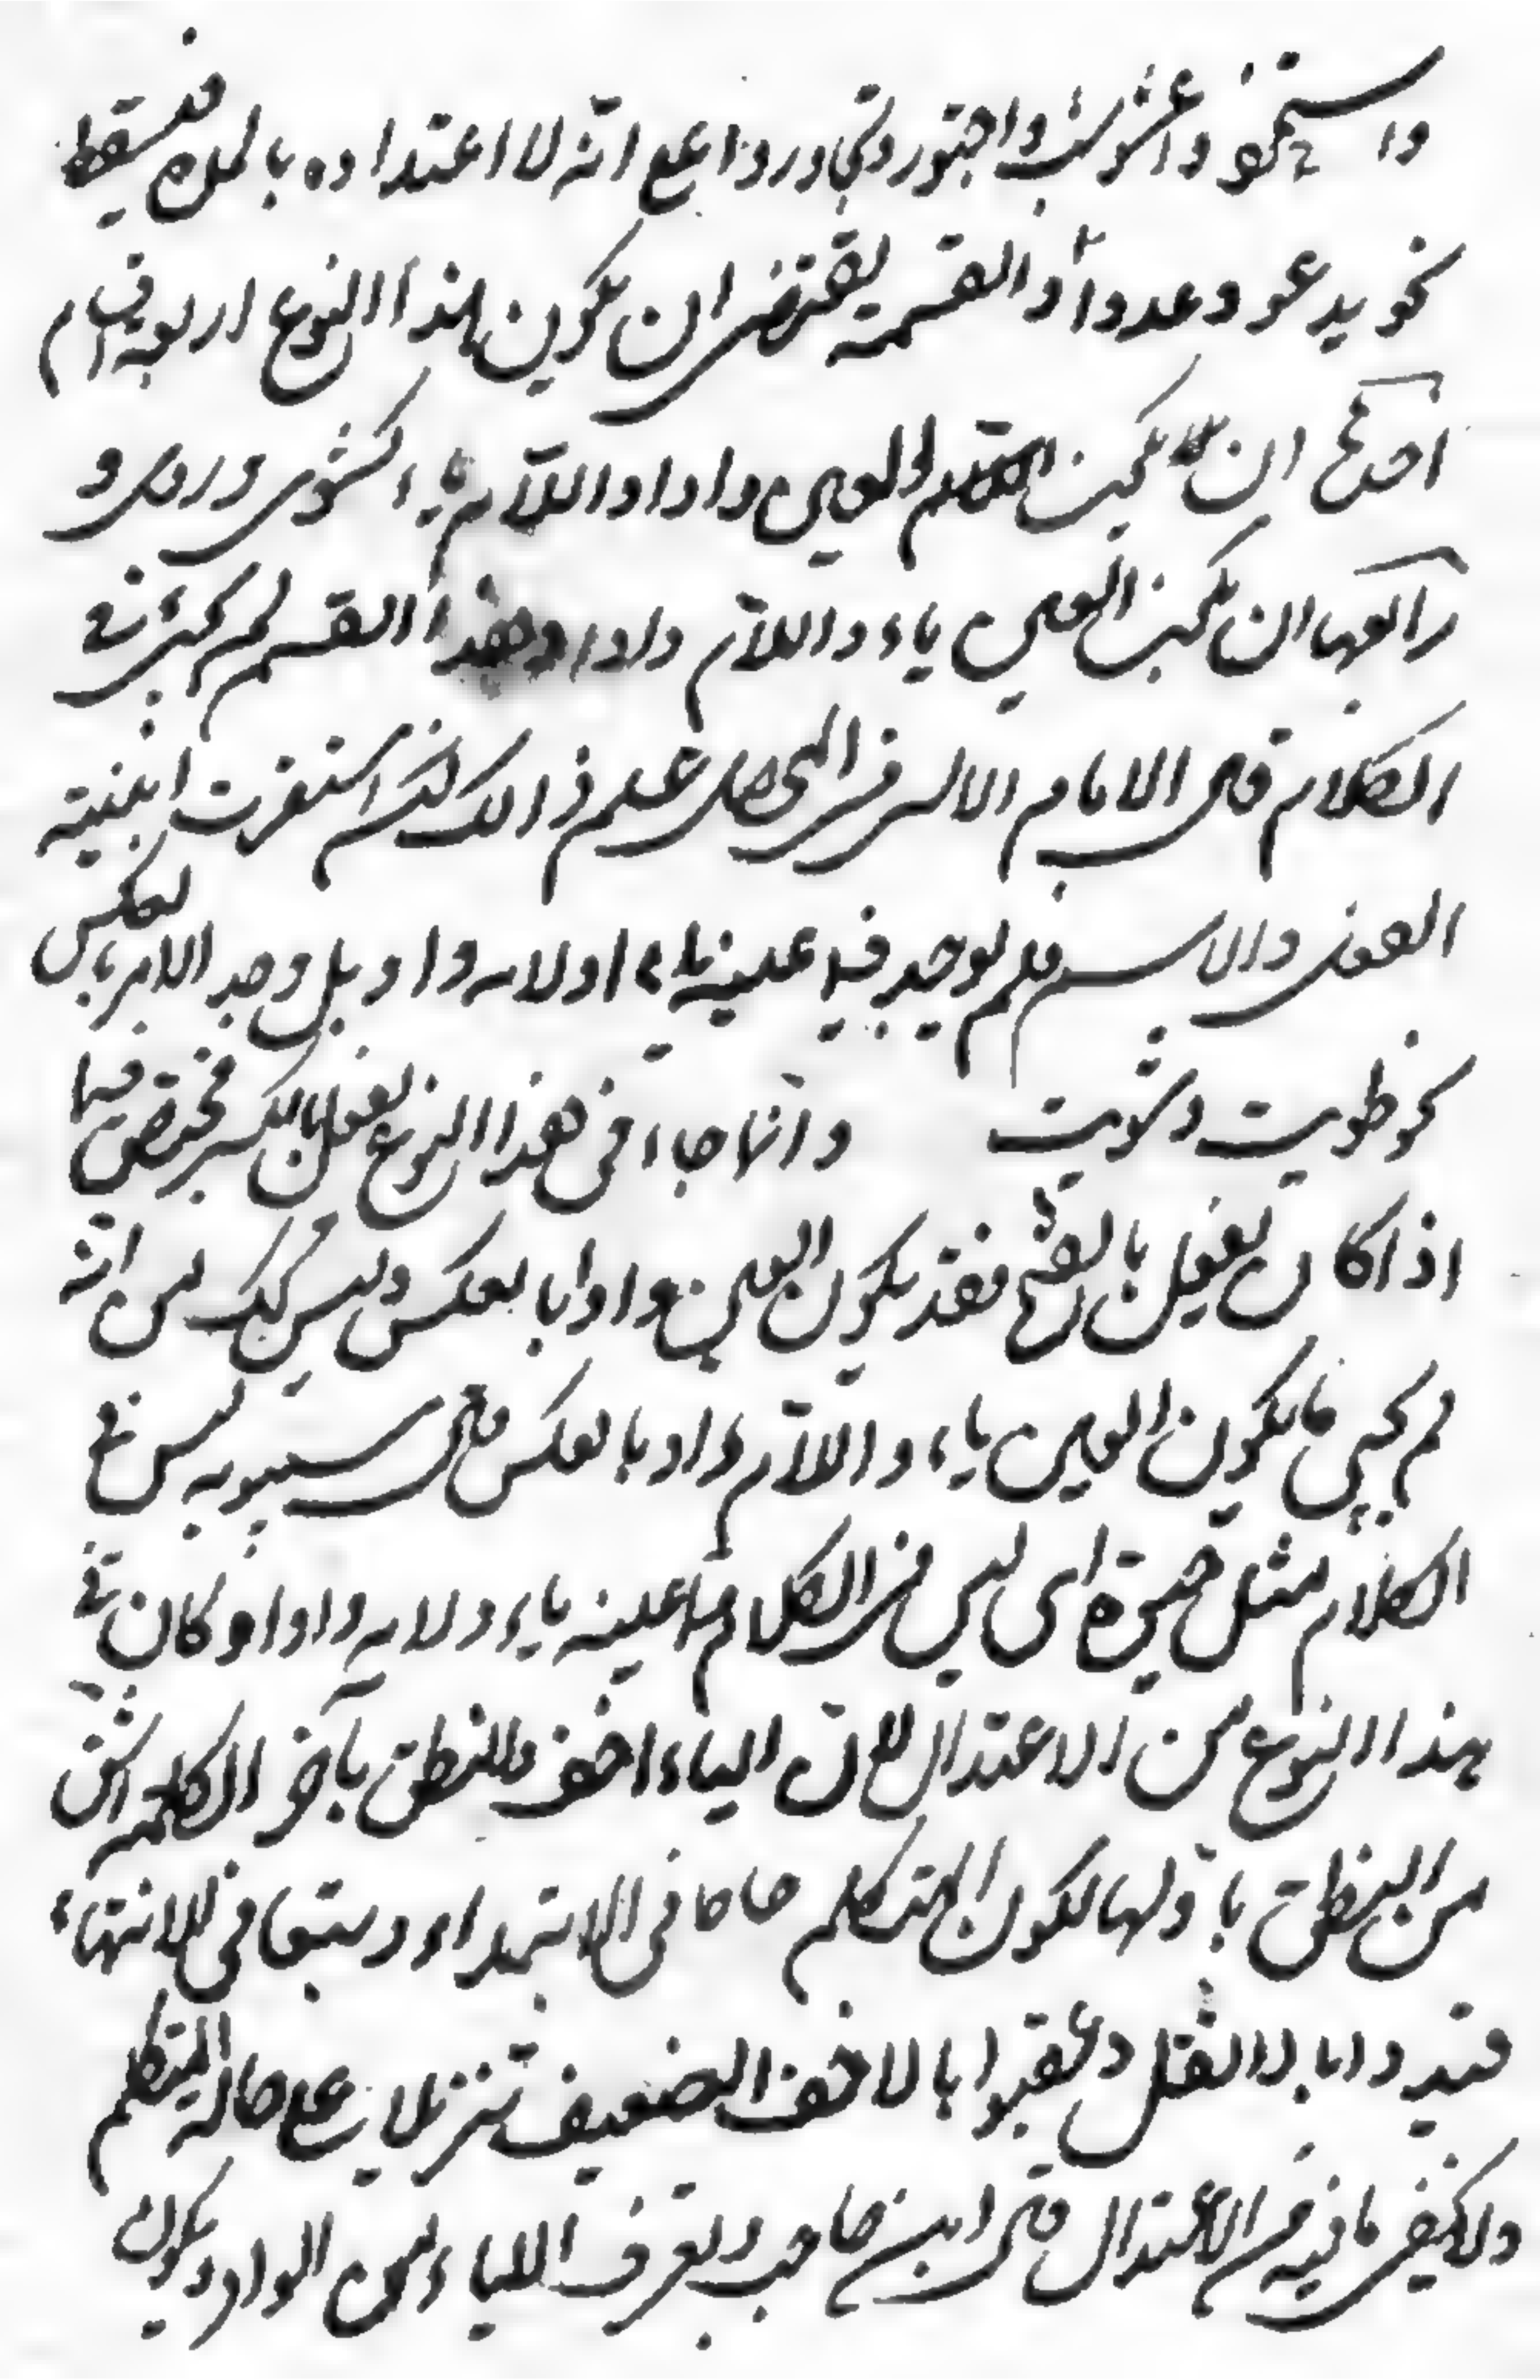 واستحوذ واعشوشب واجتور وتجاور واعلم انه لا اعتداده بالمدة فيسقط
نحو يدعو وعدوا والقسمة يقتضى ان يكون لهذا النوع اربعة اقسام
احدها ان يكون العين واوا واللام ياء كشوى وروى و
رابعها ان يكون العين ياء واللام واوا وهذا القسم لم يجئ فى
الكلام قال الامام علم ذالك استقرت ابنية
الفعل والاسم فلم يوجد فيه عينه ياء ولامه واو بل وجد الامر بالعكس
نحو طويت وشويت وانما جاء فى هذا النوع يفعل بالكسر فيختص فيما
اذا كان يفعل بالفتح فقد يكون العين واوا بالعكس وليس انه
لم يجئ ما يكون العين ياء واللام واو بالعكس قال سيبويه ليس فى
الكلام مثل حيوة اى ليس فى الكلام ما عينه ياء ولامه واوا وكان فى
هذا النوع من الاعتدال لان الياء اخف والنطق بآخر الكلمة اشق
من النطق باولها لكون المتكلم فى الابتداء وتعبا فى الانتهاء
فيبدوا بالثقل وعقبوا بالاخف الضعيف تنزيلا على حالة المتكلم
ولا يخفى ما فيه من الاعتدال قال ابن حاجب ويعرف الياء من الواو ويكون